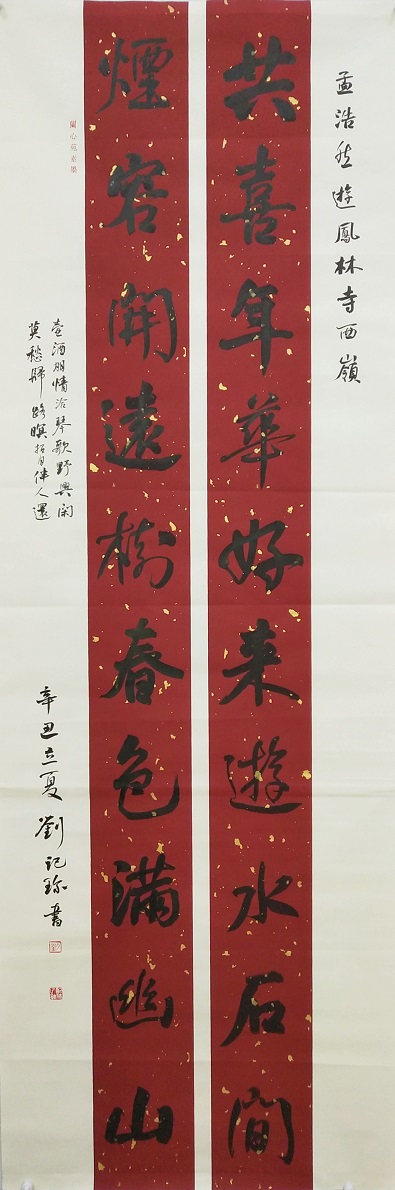 孟浩然遊鳳林寺西嶺
共喜年華好来遊水石間
煙容開遠樹春色滿幽山
壺酒朋情洽琴歌野興闲
莫愁歸路暝招月伴人還
辛丑立夏劉記珎書